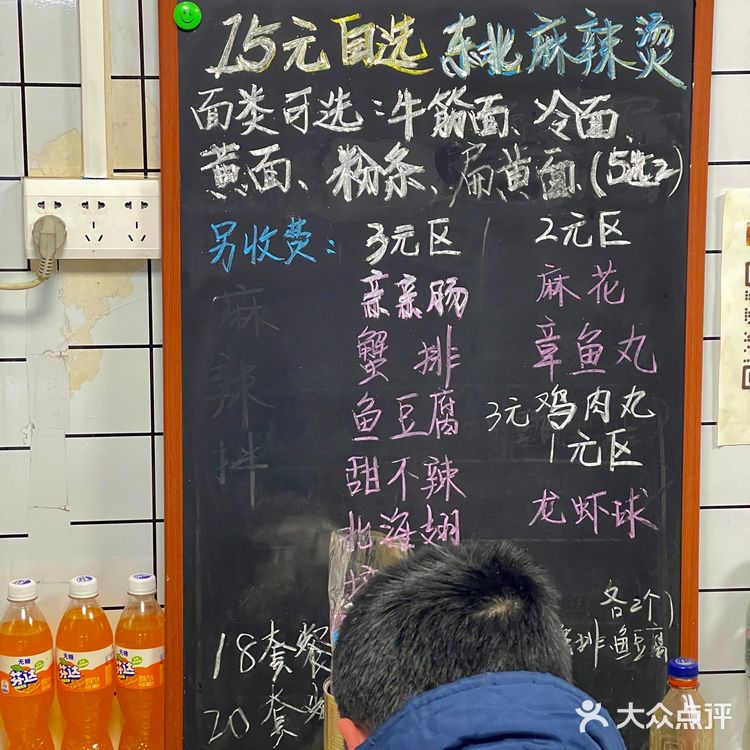 15元自选 东北麻辣烫
面类可选：牛筋面、冷面、
黄面、粉条、扁黄面（5选2）
另收费： 3元区 2元区
亲亲肠 麻花
蟹排 章鱼丸
鱼豆腐 3元鸡肉丸
1元区
甜不辣
龙虾球
北海翅
麻辣拌
各2个）
18套餐 排鱼豆腐
20套
无糖 芬达
无糖 芬达
无糖 芬达
大众点评